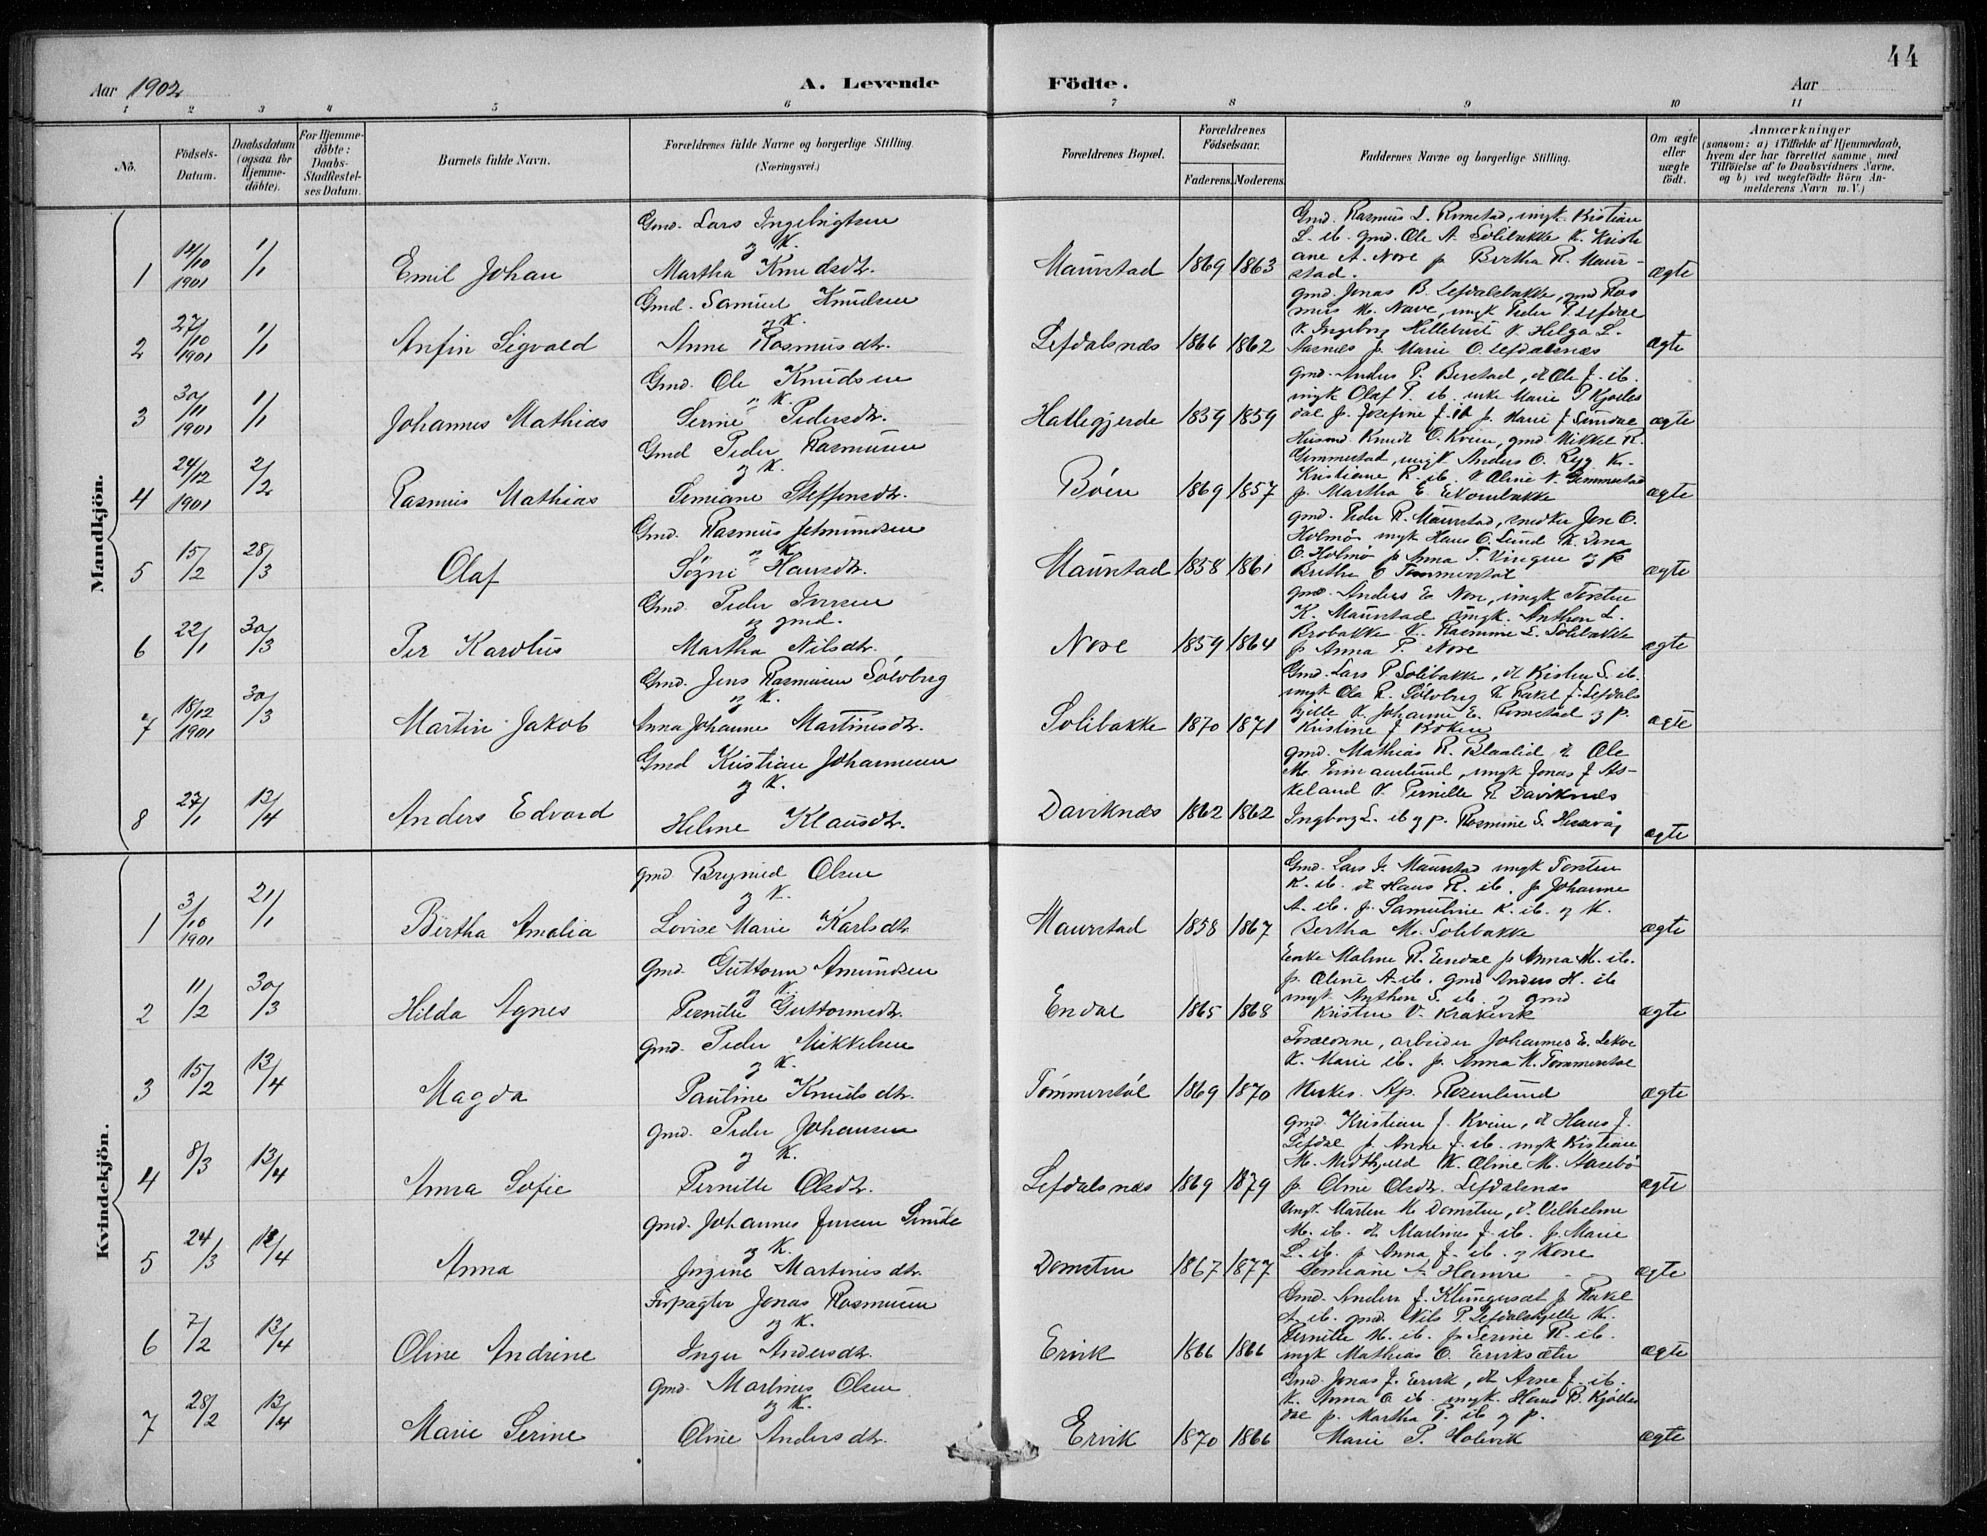 44
Aar 1902
A. Levende Födte.
Aar
1 2 3 4 5 6 7 8 9 10 11
No.
Födsels-Datum.
Daabsdatum (ogsaa for Hjemme-döbte).
For Hjemme-döbte: Daabs-Stadfæstelses Datum.
Barnets fulde Navn.
Forældrenes fulde Navne og borgerlige Stilling. (Næringsvei.)
Forældrenes Bopæl.
Forældrenes Födselsaar.
Faderens. Moderens.
Faddernes Navne og borgerlige Stilling.
Om ægte eller uægte födt.
Anmærkninger
(saasom: a) i Tilfælde af Hjemmedaab,
hvem der har forrettet samme, med
Tilföielse af to Daabsvidners Navne,
og b) ved uægtefödte Börn An-
melderens Navn m. V.)
Mandkjön.
1 14/10 1901 1/1 Emil Johan
Gmd. Lars Ingebrigtsen
og K.
Martha Knudsdtr.
Maurstad 1869 1863
Gmd. Rasmus L. Rimstad, ungk. Kristian
L. ib. gmd. Ole A. Solibakke K. Kristi
ane A. Nore p Bertha R. Maur-
stad.
ægte
2 27/10 1901 1/1 Anfin Sigvald
Gmd. Samuel Knudsen
og K.
Anne Rasmusdtr.
Lefdalsnæs 1866 1862
gmd. Jonas B. Lefdalsbakke, gmd Ras
mus M. Nave, ungk Peder P. Lefdal
K Ingeborg K Helga L.
p. Marie O. Lefdalsnæs
ægte
3 30/11 1901 1/1 Johannes Mathias
Gmd. Ole Knudsen
og K.
Serine Pedersdtr.
Hatlegjerde 1859 1859
gmd. Anders P. Berstad, d Ole J. ib.
ungk Olaf P. ib. enke Marie P Kjölles
dal p. Josefine J. ib p. Marie J Sundal
ægte
4 24/12 1901 2/2 Rasmus Mathias
Gmd Peder Rasmusen
og K.
Semiane Steffensdtr.
Böen 1869 1857
Husmd Knudt O. Kvien, gmd Mikkel R.
Gimmestad, ungk. Anders O. Ryg K.
Kristiane R. ib. K Oline N. Gimmestad
p. Martha E. Ekornbakke
ægte
5 15/2 28/3 Olaf
Gmd. Rasmus Jetmundsen
og K.
Signi Hansdtr.
Maurstad 1858 1861
gmd. Peder R. Maurstad, snedker Jon O.
Holmö ungk Hans O. Lund K. Dina
O. Holmö p Anna T. Vingen og p
Brithe O Tömmerstöl
ægte
6 22/1 30/3 Per Karolus
Gmd. Peder Iversen
og gmd.
Martha Nilsdtr.
Nore 1859 1864
gmd. Anders E Nore, ungk Torsten
K. Maurstad ungk. Anthon L.
Brobakke K. Rasmine L. Solibakke
p Anna P. Nore
ægte
7 18/12 1901 30/3 Martin Jakob
Gmd. Jens Rasmusen Sölvberg
og K.
Anna Johanne Martinusdtr.
Solibakke 1870 1871
Gmd. Lars P Solibakke, d Kristen S. ib.
ungk Ola R. Sölvberg K Rakel J. Lefdals
hjelle K. Johanne E. Rimstad og p.
Kristine J
ægte
8 27/1 13/4 Anders Edvard
Gmd Kristian Johannesen
og K.
Heline Klausdtr.
Daviknæs 1862 1862
gmd. Mathias R. Blaalid, d Ole
M. ungk Jonas J As-
keland K. Pernille R Daviknæs
Ingborg L. ib og p. Rasmine S.
ægte
Kvindekjön.
1 3/10 1901 21/1 Birtha Amalia
gmd Brynild Olsen
og K.
Lovise Marie Karlsdtr
Maurstad 1858 1867
Gmd. Lars J. Maurstad ungk Torsten
K. ib. d Hans R. ib. p Johanne
A. ib. p. Samuline K. ib. og K.
Bertha M. Solibakke
ægte
2 11/2 30/3 Hilda Agnes
Gmd. Guttorm Amundsen
og K.
Pernille Guttormsdtr.
Endal 1865 1868
Enke Malene R. Endal p Anna M. ib.
p. Oline A. ib. gmd Anders H. ib
ungk. Anthon S. ib. og gmd
Kristen V. Krakevik
ægte
3 15/2 13/4 Magda
gmd. Peder Mikkelsen
og K.
Pauline Knudsdtr.
Tömmerstöl 1869 1870
Forældrene, arbeider Johannes E.
K. Marie ib. p. Anna M. Tömmerstöl
Kirkes. Rp. Rosenlund
ægte
4 8/3 13/4 Anna Sofie
gmd. Peder Johansen
og K.
Pernille Olsdtr.
Lefdalsnæs 1869 1879
gmd. Kristian J. Kvien, d Hans J.
Lefdal p. Anne J. ib. ungk Kristian
M. K. Oline M. Aasebö
p. Oline Olsdtr. Lefdalsnæs
ægte
5 24/3 13/4 Anna
gmd. Johannes Jensen Smile
og K.
Jörgine Martinusdtr.
Domsten 1867 1877
Ungk. Marten M Domsten, d. Vilhelm
M. ib. d Martinus J. ib. p. Marie
L. ib. p Anna J. ib. og Kone
Semiane A Hamre
ægte
6 7/2 13/4 Oline Andrine
Forpagter Jonas Rasmusen
og K.
Inger Andersdtr.
Ervik 1866 1866
Gmd. Anders J. p Rakel
A ib. gmd. Nils P. Lefdalshjelle K.
Pernille M. ib. p Serine R. ib.
ungk Mathias O. Erviksæter
ægte
7 28/2 13/4 Marie Serine
gmd. Martinus Olsen
og K.
Oline Andersdtr.
Ervik 1870 1866
Gmd. Jonas J. Ervik, d Arne J. ib.
K. Anna O ib. ungk. Hans B. Kjölles
dal p. Martha P. ib og p.
Marie P. Holevik
ægte